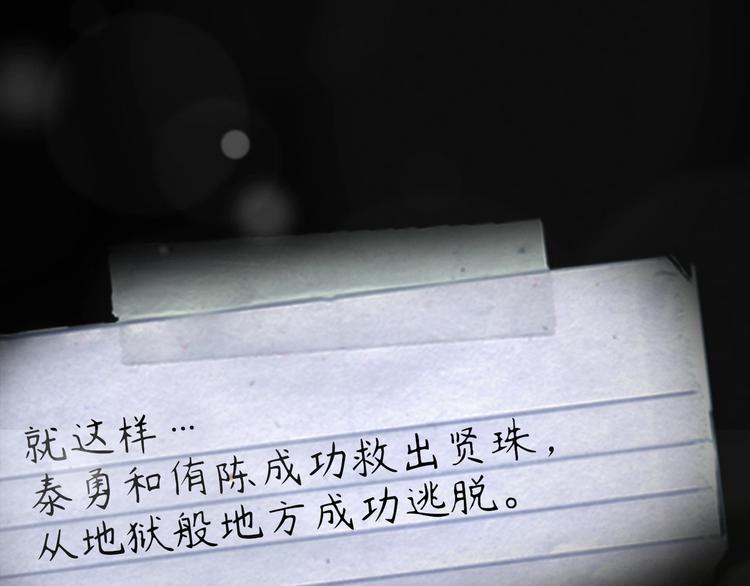 就这样…
泰勇和侑陈成功救出贤珠，
从地狱般地方成功逃脱。